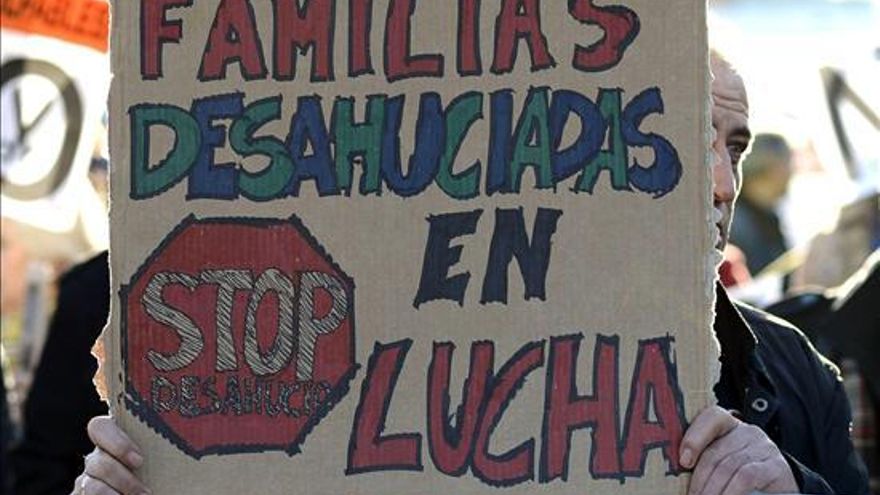 FAMILIAS
DESAHUCIADAS
EN
LUCHA
STOP
DESAHUCIO